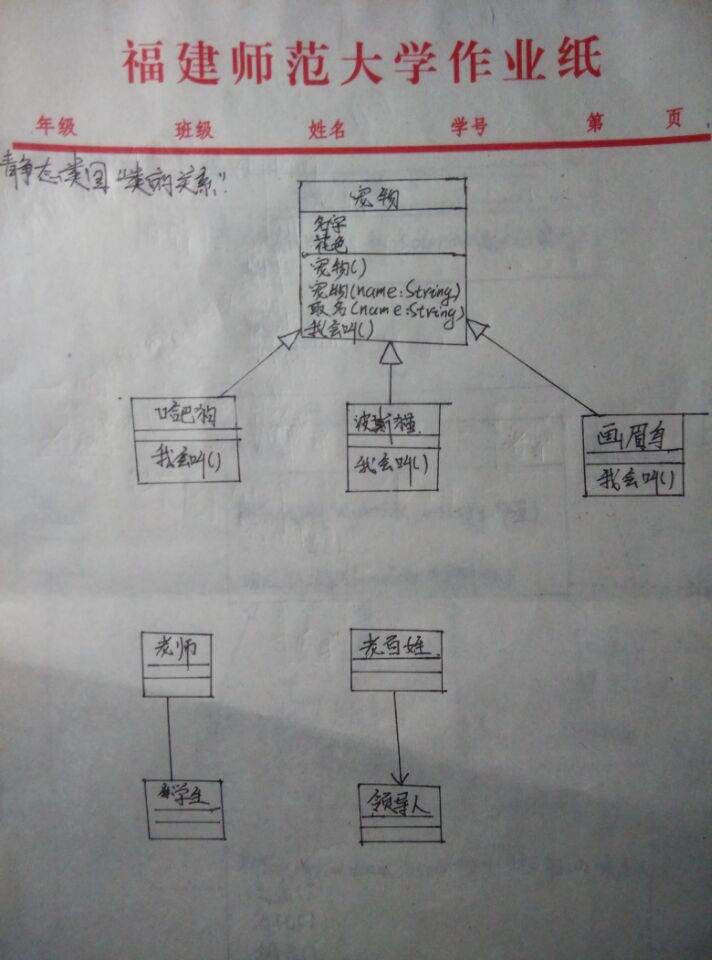 福建师范大学作业纸
年级 班级 姓名 学号 第 页
静态类图"类的关系"
宠物
名字
花色
宠物()
宠物(name:String)
取名(name:String)
我会叫()
哈巴狗 波斯猫 画眉鸟
我会叫() 我会叫() 我会叫()
老师 老百姓
学生 领导人